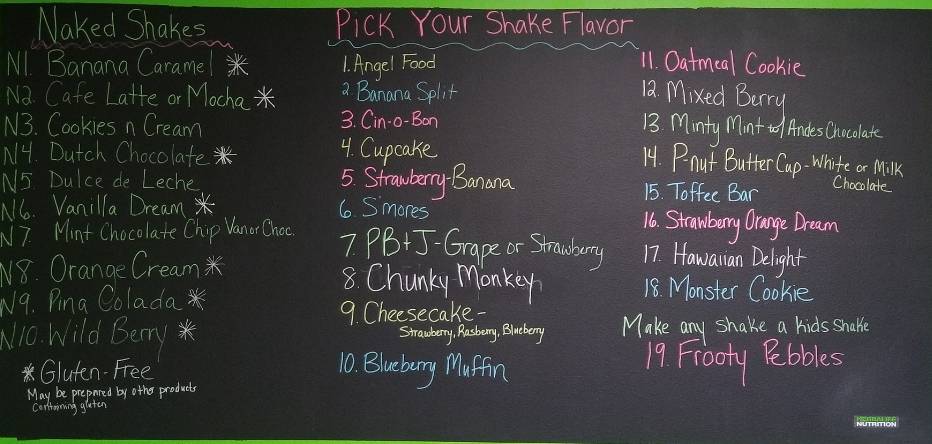 Naked Shakes
N1. Banana Caramel *
N2. Cafe Latte or Mocha *
N3. Cookies n Cream
N4. Dutch Chocolate *
N5. Dulce de Leche
N6. Vanilla Dream *
N7. Mint Chocolate Chip Van or Choc.
N8. Orange Cream *
N9. Pina Colada *
N10. Wild Berry *
* Gluten-Free
May be prepared by other products
Containing gluten
Pick Your Shake Flavor
1. Angel Food
2. Banana Split
3. Cin-o-Bon
4. Cupcake
5. Strawberry-Banana
6. S'mores
7. PB+J-Grape or Strawberry
8. Chunky Monkey
9. Cheesecake-
Strawberry, Rasberry, Blueberry
10. Blueberry Muffin
11. Oatmeal Cookie
12. Mixed Berry
13. Minty Mint w/ Andes Chocolate
14. P-nut Butter Cup-White or Milk
Chocolate
15. Toffee Bar
16. Strawberry Orange Dream
17. Hawaiian Delight
18. Monster Cookie
Make any shake a kids shake
19. Frooty Pebbles
HERBALIFE
NUTRITION